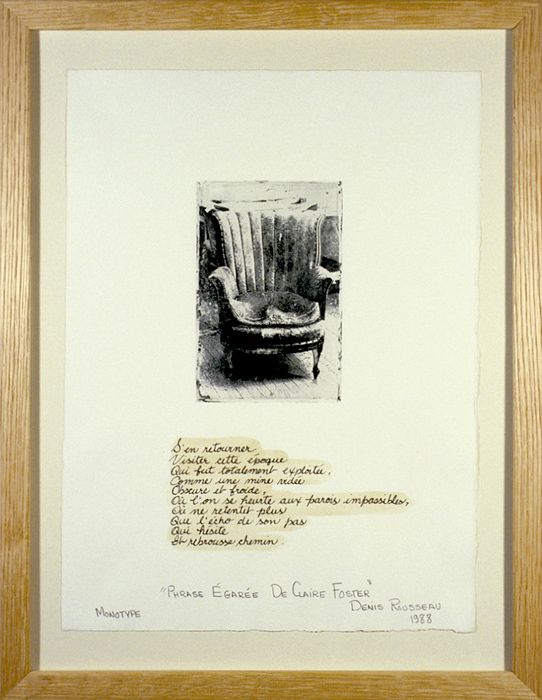 S'en retourner,
Visiter cette époque
Qui fut totalement exploitée,
Comme une mine vidée
Obscure et froide,
Où l'on se heurte aux parois impassibles,
Où ne retentit plus
Que l'écho de son pas
Qui hésite
Et rebrousse chemin.
"PHRASE ÉGARÉE DE CLAIRE FOSTER"
MONOTYPE
DENIS ROUSSEAU
1988